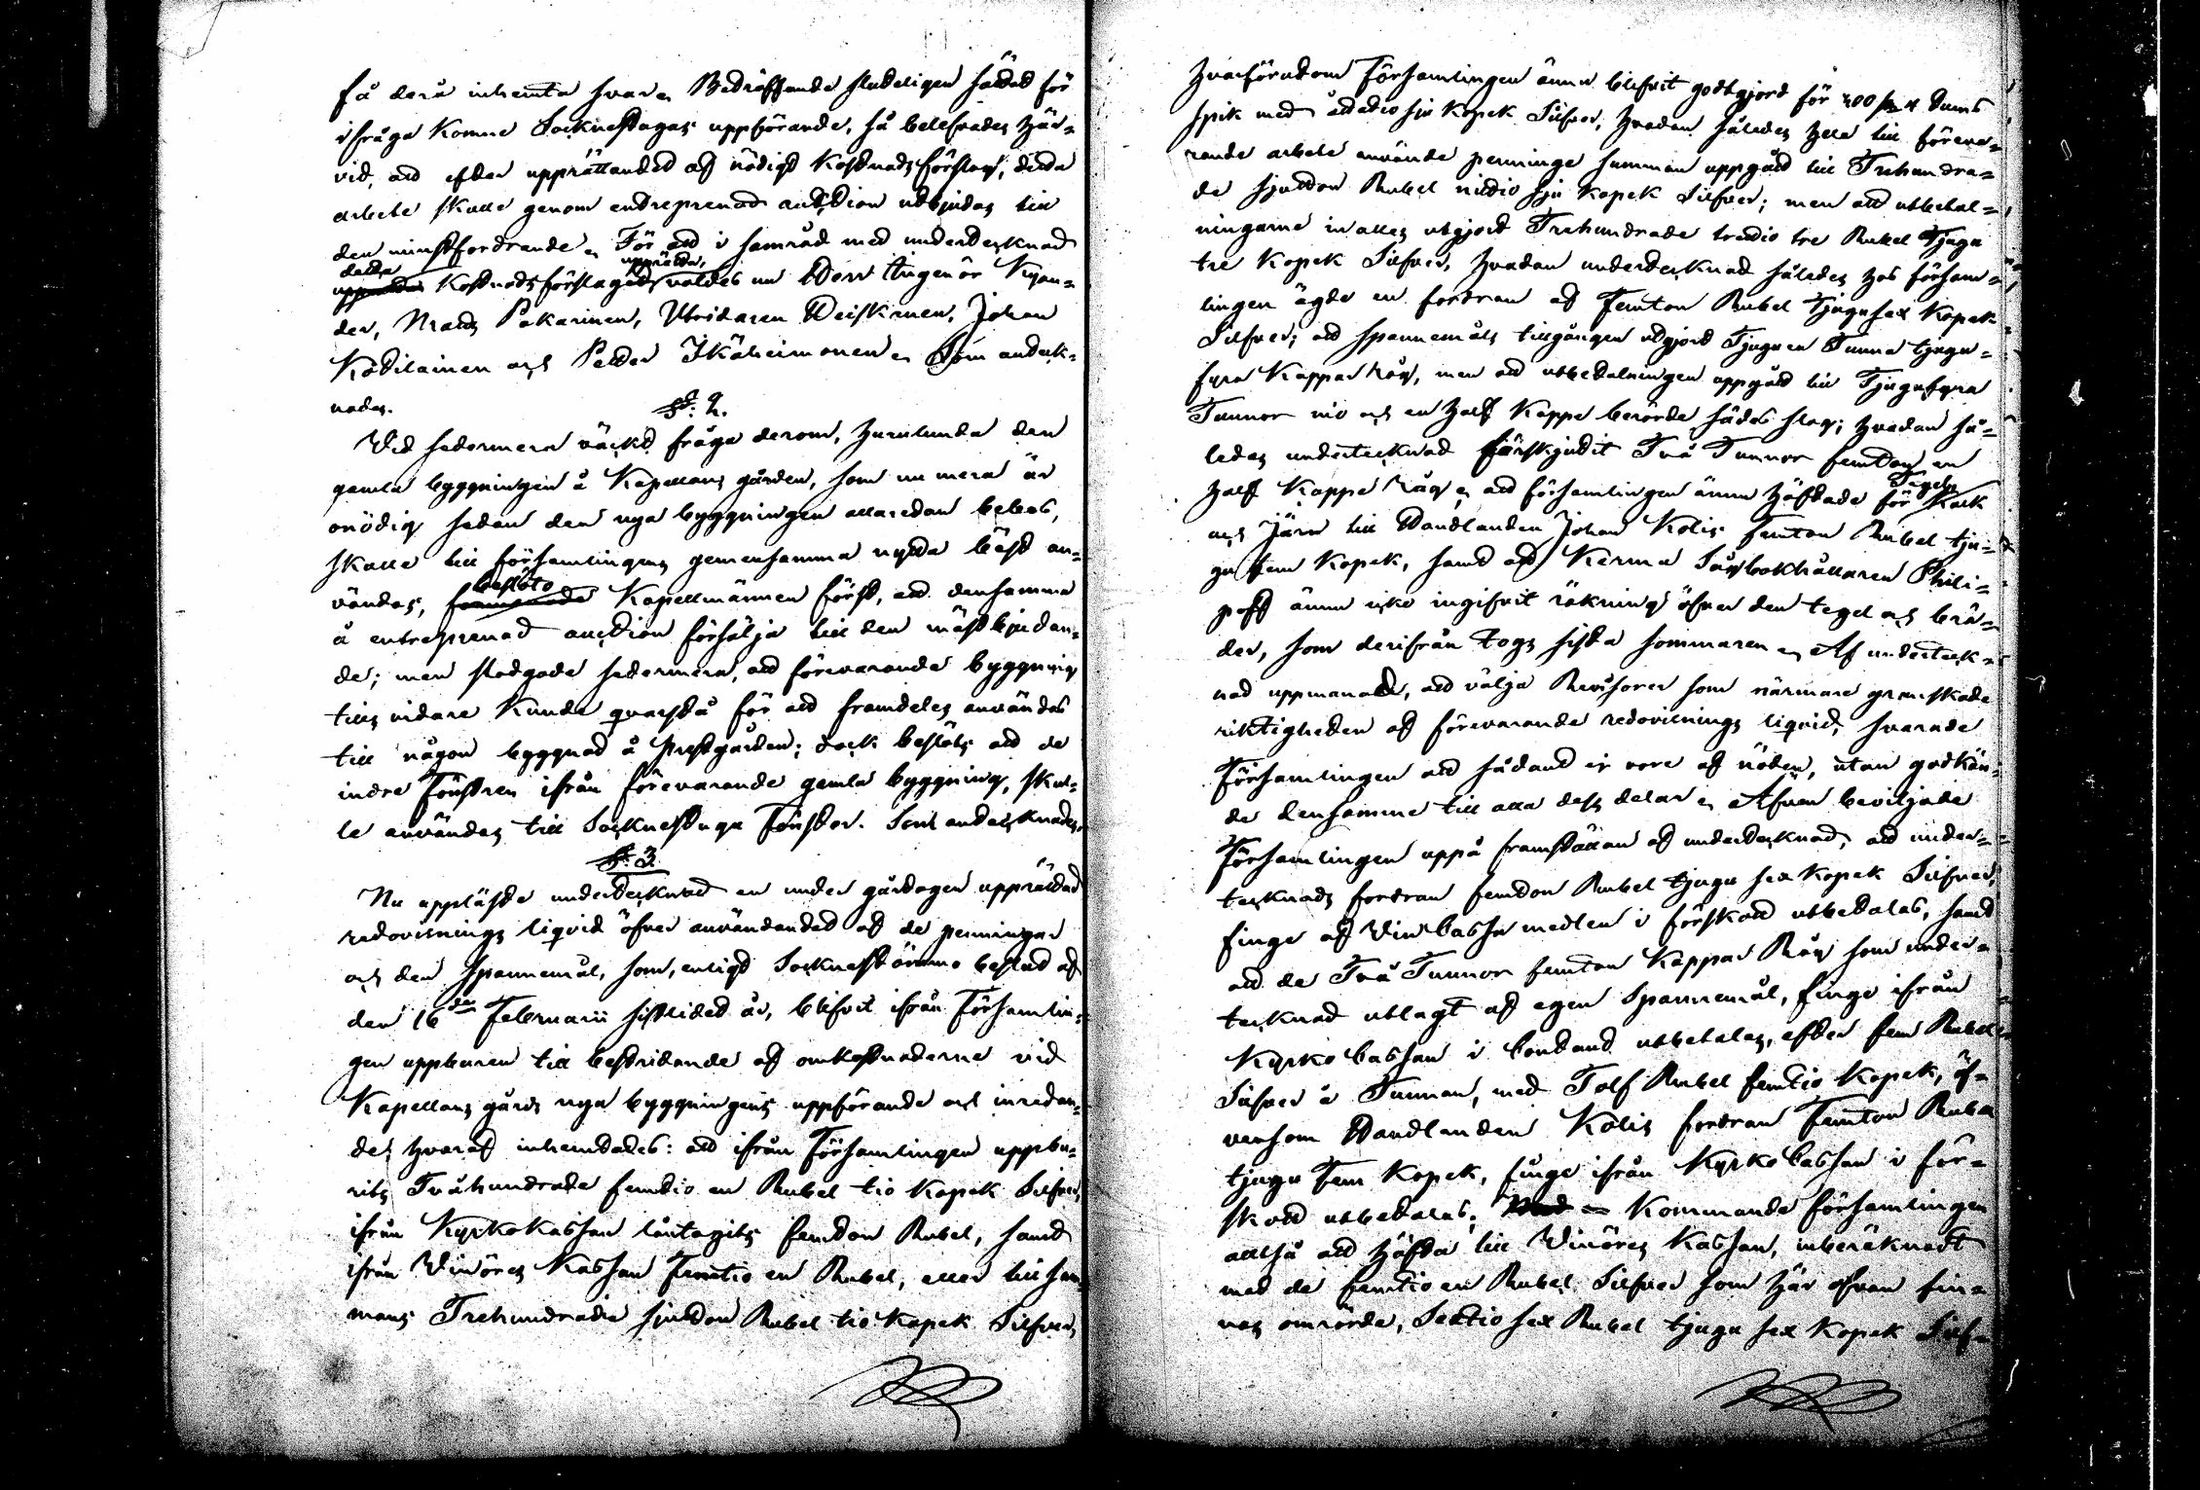 få dera inhemta svar. Beträffande slutligen sättet för
ifråga komne Socknestugas uppförande, så belefvades här-
vid, att efter upprättandet af nödigt Kostnadsförslag, detta
arbete skulle genom entreprenad auction utbjudas till
den minstfordrande. För att i samråd med undertecknad
detta upprätta,
Kostnadsförslaget valdes nu Herr Ingeniör Nyan-
der, Mats Pakarinen, Utridaren Heiskinen, Johan
Kotilainen och Petter Ikäheimonen. Som anteck-
nades.
§: 2.
Vid sedermera väckt fråga derom, hurulunda den
gamla byggningen å Kapellans gården, som nu mera är
onödig sedan den nya byggningen allaredan bebos,
skulle till församlingens gemensamma nytta bäst an-
beslöto
vändas, Kapellmännen först, att densamma
å entreprenad auction försälja till den mäst bjudan-
de; men stadgade sedermera, att förevarande byggning
tills vidare kunde qvarstå för att framdeles användas
till någon byggnad å Prestgården; dock beslöts att de
indre Fönstren ifrån förevarande gamla byggning, skul-
le användas till Socknestugu Fönster. Som antecknades.
§: 3
Nu uppläste undertecknad en under gårdagen upprättad
redovisnings liqvid öfver användandet af de penningar
och den Spannemål, som, enligt Sockneståmmo beslut af
den 16de Februarii sistlidet år, blifvit ifrån Församlin-
gen uppburen till bestridande af omkostnaderne vid
Kapellans gårds nya byggningens uppförande och inredan-
de; hvaraf inhemtades: att ifrån Församlingen uppbu-
rits Tvåhundrade femtio en Rubel tio Kopek Silfver,
ifrån Kyrkokassan låntagits femton Rubel, samt
ifrån Vinöres Kassan Femtio en Rubel, eller tillsam-
mans Trehundrade sjutton Rubel tio Kopek Silfver,
hvarförutom Församlingen ännu blifvit godtgjord för 200 st 4 tums
spik med åttatio sju Kopek Silfver, hvadan således hela till föreva-
rande arbete använde penninge summan uppgått till Trehundra-
de sjutton Rubel nittio sju Kopek Silfver; men att utbetal-
ningarne inalles utgjort Trehundrade trettio tre Rubel Tjugu
tre Kopek Silfver, hvadan undertecknad således hos försam-
lingen ägde en fordran af Femton Rubel Tjugu sex Kopek
Silfver; att spannemåls tillgången utgjort Tjugu en Tunna tjugu-
fyra Kappar Råg, men att utbetalningen uppgått till Tjugufyra
Tunnor nio och en half Kappe berörde sädes slag; hvadan så-
ledes undertecknad förskjutit Två Tunnor femton en
Tegel,
half Kappe Råg, att församlingen ännu häftade för Kalk
och Järn till Handlanden Johan Kolis Femton Rubel tju-
gu fem Kopek, samt att Kerma Sågbokhållaren Phili-
poff ännu icke ingifvit räkning öfver den tegel och brä-
der, som derifrån togs sista sommaren. Af underteck-
nad uppmanad, att välja Revisorer som närmare granskade
riktigheten af förevarande redovisnings liqvid, svarade
Församlingen att sådant ej vore af nöden, utan godkän-
de densamme till alla dess delar. Afven beviljade
Församlingen uppå framställan af undertecknad, att under-
tecknads fordran femton Rubel tjugu sex Kopek Silfver,
finge af Vincassa medlen i förskott utbetalas, samt
att de Två Tunnor femton Kappar Råg som under-
tecknad utlagt af egen Spannemål, finge ifrån
Kyrko Cassan i contant utbetalas, efter fem Rubel
Silfver å Tunnan, med Tolf Rubel femtio Kopek, äf-
vensom Handlanden Kolis fordran Femton Rubel
tjugu Fem Kopek, finge ifrån Kyrko Cassan i för-
skott utbetalas; Kommande församlingen
alltså att häfta till Vinöres Kassan, inberäknadt
med de femtio en Rubel Silfver som här ofvan fin-
nas omrörde, Sextio sex Rubel tjugu sex Kopek Silf-